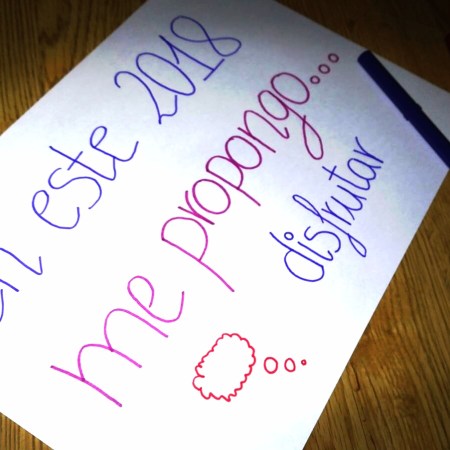 en este 2018
me propongo...
disfrutar